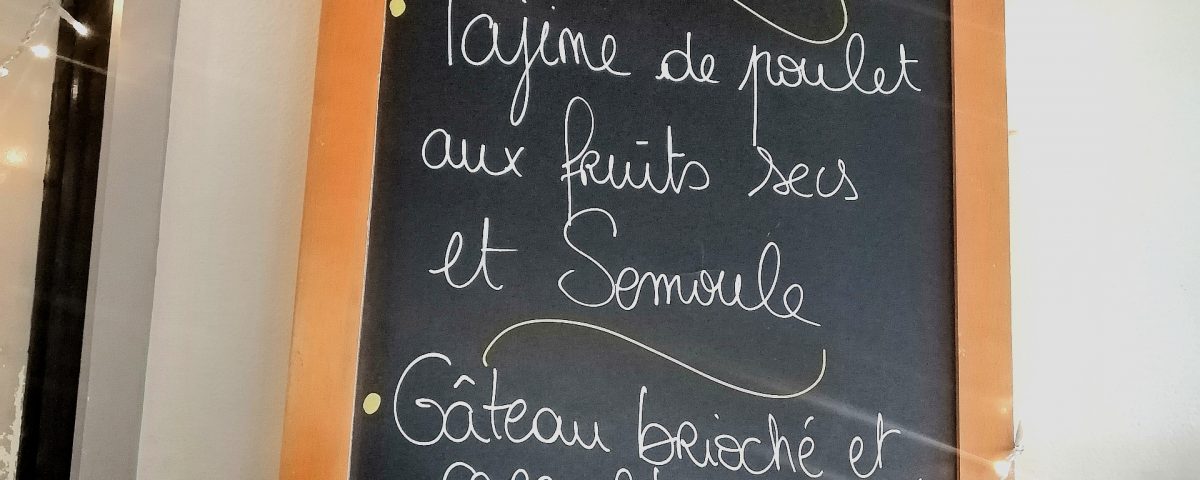 Tajine de poulet
aux fruits secs
et Semoule
Gâteau brioché et